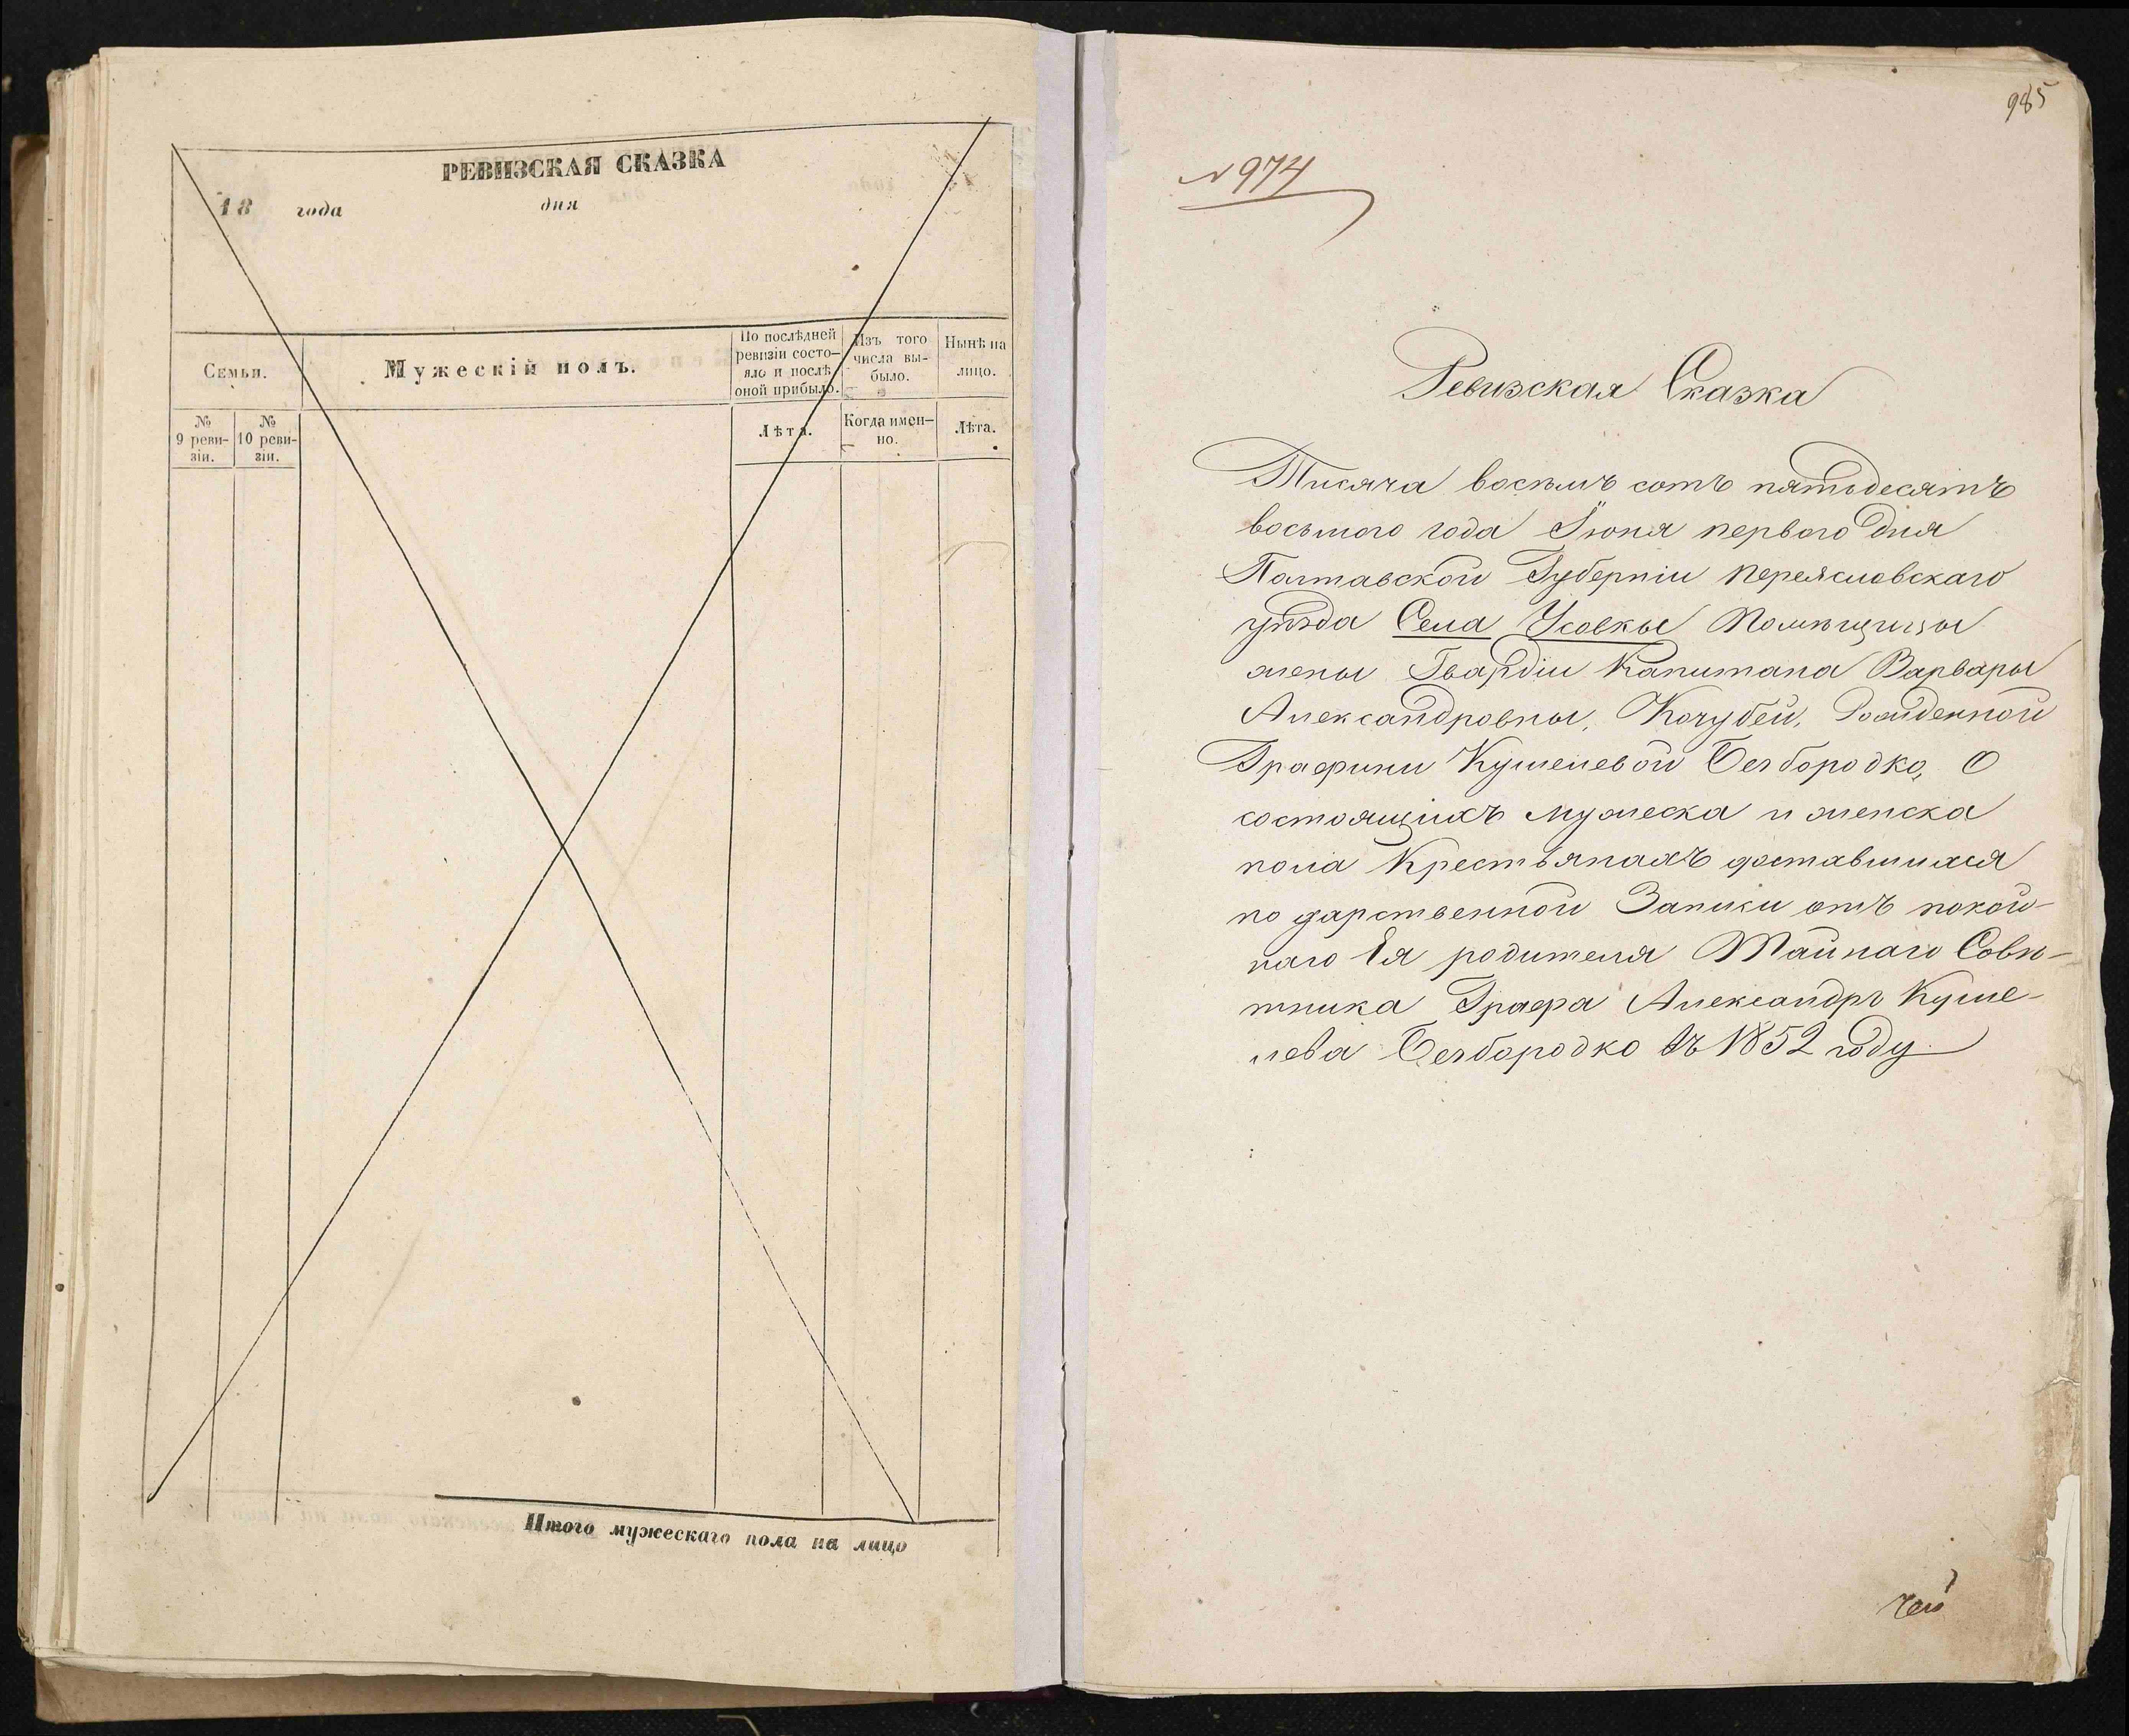 РЕВИЗСКАЯ СКАЗКА
18 года дня
Семьи.
Мужескій полъ.
По послѣдней
ревизіи состо-
яло и послѣ
оной прибыло.
Изъ того
числа вы-
было.
Нынѣ на
лицо.
№
9 реви-
зіи.
№
10 реви-
зіи.
Лѣта.
Когда имен-
но.
Лѣта.
Итого мужескаго пола на лицо
985
№ 974
Ревизская Сказка
Тисяча восемъ сотъ пятьдесятъ
восьмого года Іюня первого дня
Полтавской Губерніи Переясловскаго
уѣзда Села Усовкы Помѣщицы
жены Гвардіи Капитана Варвары
Александровны, Кочубей, Рожденной
Графини Кушелевой Безбородко, О
состоящихъ мужеска и женска
пола Крестьянахъ доставшихся
по дарственной Записи отъ покой-
наго Ея родителя Тайнаго Совѣ-
тника Графа Александра Куше-
лева Безбородко въ 1852 году